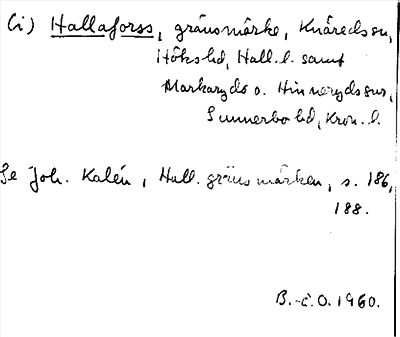 (i) Hallaforss, gränsmärke, Knäreds sn,
Höks hd, Hall. l. samt
Markaryds o. Hinneryds snr,
Sunnerbo hd, Kron. l.
Se Joh. Kalén, Hall. gränsmärken, s. 186,
188.
B.-č.O. 1960.